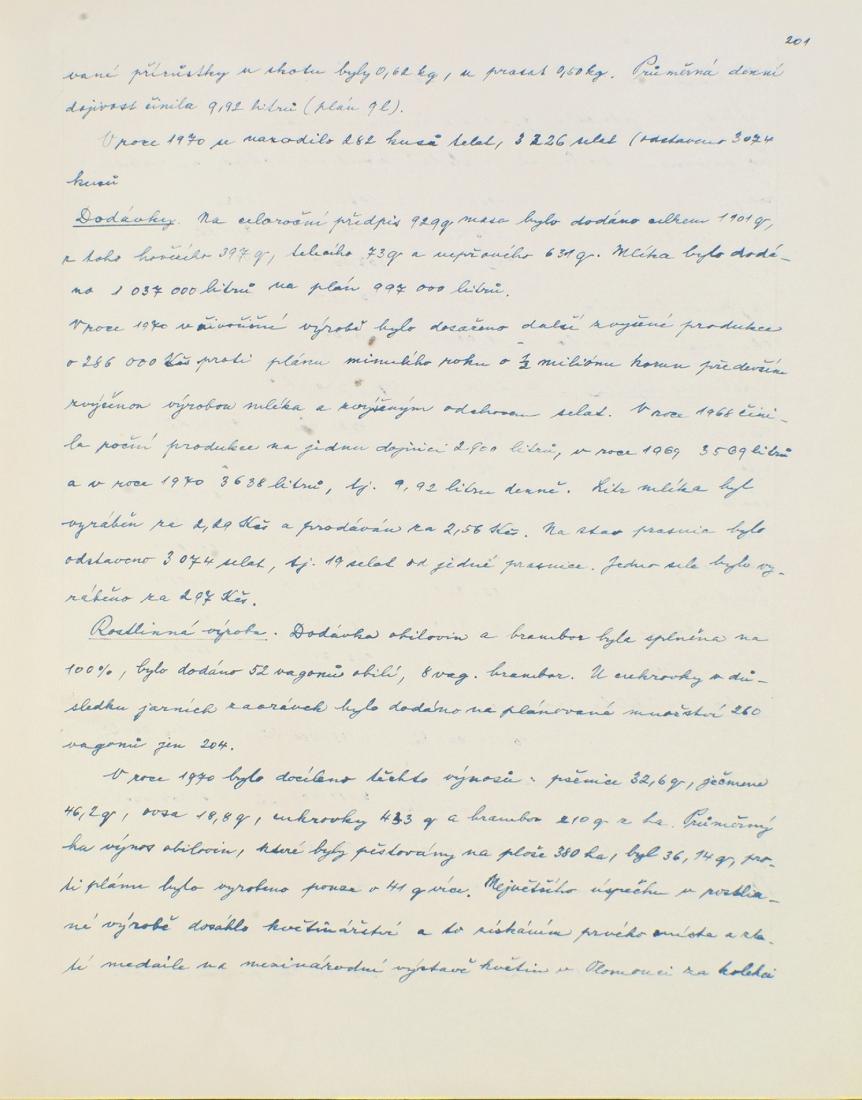 201
vané přírůstky u skotu byly 0,62 kg, u prasat 0,50 kg. Průměrná denní
dojivost činila 9,92 litrů (plán 9 l).
V roce 1970 se narodilo 282 kusů telat, 3 226 selat (odstaveno 3074
kusů
Dodávky. Na celoroční předpis 929 q masa bylo dodáno celkem 1901 q,
z toho hovězího 397 q, telecího 73 q a vepřového 631 q. Mléka bylo dodá-
no 1 037 000 litrů na plán 997 000 litrů.
V roce 1970 v živočišné výrobě bylo dosaženo další zvýšené produkce
o 286 000 Kčs proti plánu minulého roku o 1/2 miliónu korun především
zvýšenou výrobou mléka a zvýšeným odchovem selat. V roce 1968 čini-
la roční produkce na jednu dojnici 2900 litrů, v roce 1969 3569 litrů
a v roce 1970 3638 litrů, tj. 9,92 litru denně. Litr mléka byl
vyráběn za 2,29 Kčs a prodáván za 2,56 Kčs. Na stav prasnic bylo
odstaveno 3 074 selat, tj. 19 selat od jedné prasnice. Jedno sele bylo vy-
ráběno za 297 Kčs.
Rostlinná výroba. Dodávka obilovin a brambor byla splněna na
100%, bylo dodáno 52 vagonů obilí, 8 vag. brambor. U cukrovky v dů-
sledku jarních zaorávek bylo dodáno na plánované množství 260
vagonů jen 204.
V roce 1970 bylo docíleno těchto výnosů: pšenice 32,6 q, ječmene
46,2 q, ovsa 18,8 q, cukrovky 433 q a brambor 210 q z ha. Průměrný
ha výnos obilovin, které byly pěstovány na ploše 380 ha, byl 36,14 q, pro-
ti plánu bylo vyrobeno pouze o 41 q více. Největšího úspěchu v rostlin-
né výrobě dosáhlo květinářství a to získáním prvého místa a zla-
té medaile na mezinárodní výstavě květin v Olomouci za kolekci